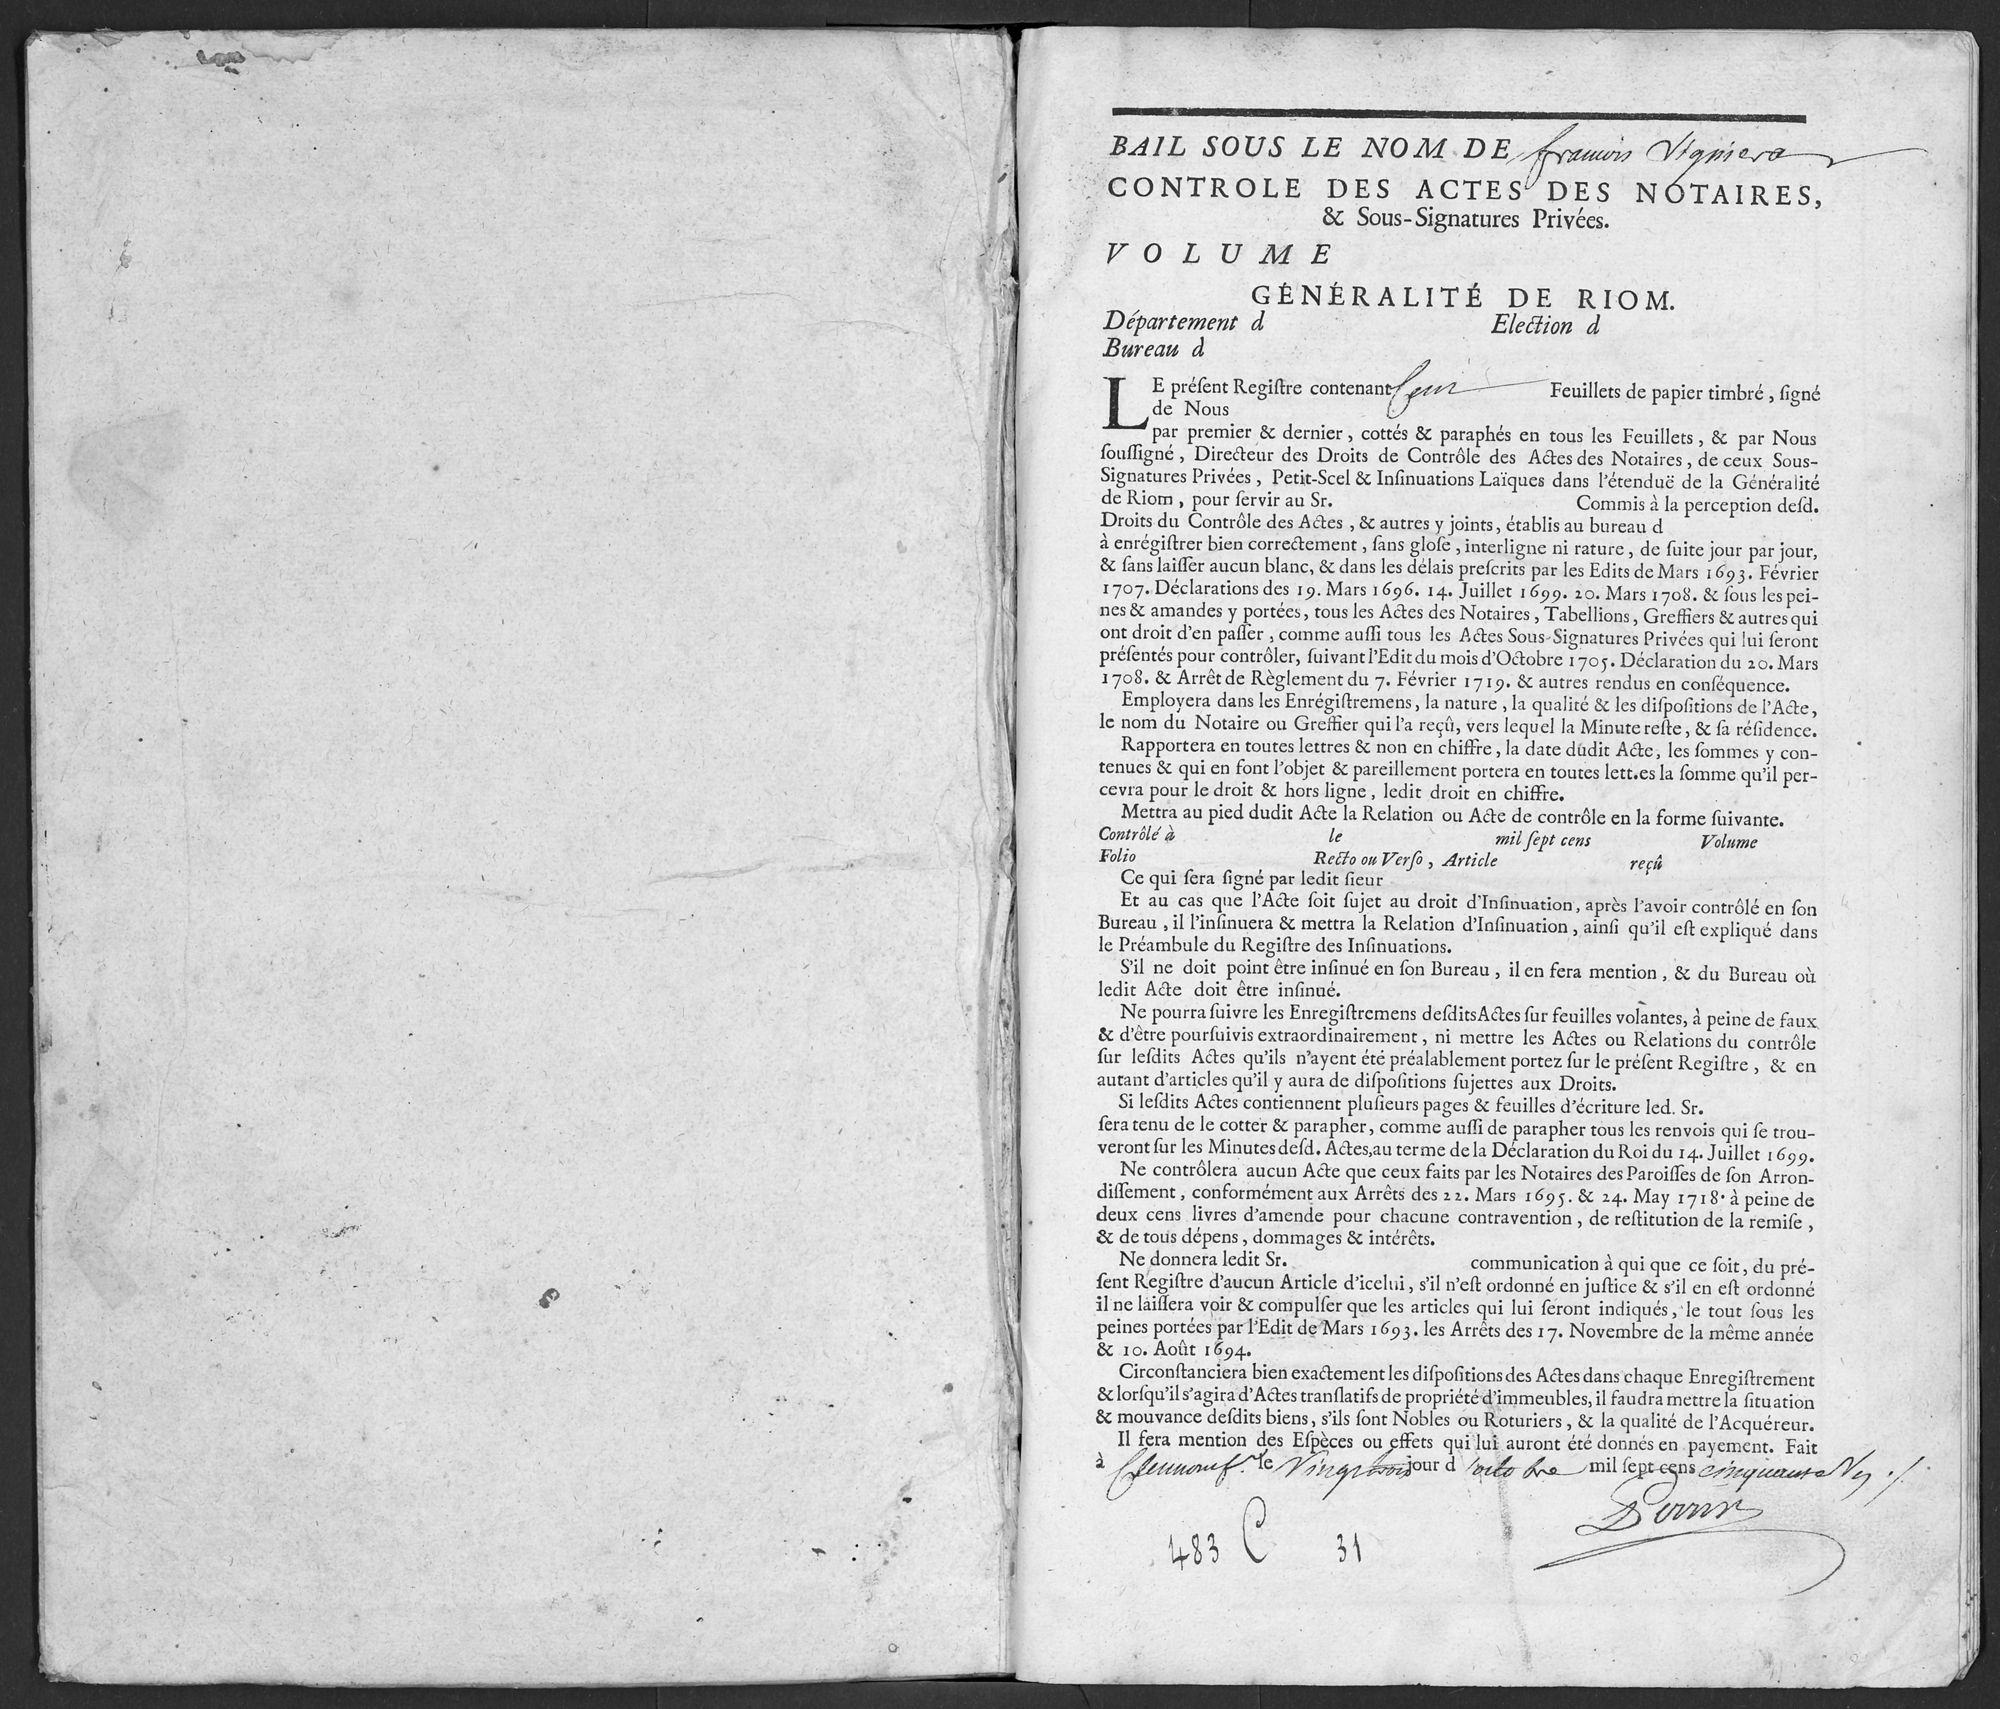 BAIL SOUS LE NOM DE francois
CONTROLE DES ACTES DES NOTAIRES,
& Sous-Signatures Privées.
VOLUME
GÉNÉRALITÉ DE RIOM.
Département d Election d
Bureau d
LE préſent Regiſtre contenant Cent Feuillets de papier timbré, ſigné
de Nous
par premier & dernier, cottés & paraphés en tous les Feuillets, & par Nous
ſouſſigné, Directeur des Droits de Contrôle des Actes des Notaires, de ceux Sous-
Signatures Privées, Petit-Scel & Inſinuations Laïques dans l'étenduë de la Généralité
de Riom, pour ſervir au Sr. Commis à la perception deſd.
Droits du Contrôle des Actes, & autres y joints, établis au bureau d
à enrégiſtrer bien correctement, ſans gloſe, interligne ni rature, de ſuite jour par jour,
& ſans laiſſer aucun blanc, & dans les délais preſcrits par les Edits de Mars 1693. Février
1707. Déclarations des 19. Mars 1696. 14. Juillet 1699. 20. Mars 1708. & ſous les pei-
nes & amandes y portées, tous les Actes des Notaires, Tabellions, Greffiers & autres qui
ont droit d'en paſſer, comme auſſi tous les Actes Sous-Signatures Privées qui lui ſeront
préſentés pour contrôler, ſuivant l'Edit du mois d'Octobre 1705. Déclaration du 20. Mars
1708. & Arrêt de Règlement du 7. Février 1719. & autres rendus en conſéquence.
Employera dans les Enrégiſtremens, la nature, la qualité & les diſpoſitions de l'Acte,
le nom du Notaire ou Greffier qui l'a reçû, vers lequel la Minute reſte, & ſa réſidence.
Rapportera en toutes lettres & non en chiffre, la date dudit Acte, les ſommes y con-
tenues & qui en font l'objet & pareillement portera en toutes lett.es la ſomme qu'il per-
cevra pour le droit & hors ligne, ledit droit en chiffre.
Mettra au pied dudit Acte la Relation ou Acte de contrôle en la forme ſuivante.
Contrôlé à le mil ſept cens Volume
Folio Recto ou Verſo, Article reçû
Ce qui ſera ſigné par ledit ſieur
Et au cas que l'Acte ſoit ſujet au droit d'Inſinuation, après l'avoir contrôlé en ſon
Bureau, il l'inſinuera & mettra la Relation d'Inſinuation, ainſi qu'il eſt expliqué dans
le Préambule du Regiſtre des Inſinuations.
S'il ne doit point être inſinué en ſon Bureau, il en fera mention, & du Bureau où
ledit Acte doit être inſinué.
Ne pourra ſuivre les Enregiſtremens deſdits Actes ſur feuilles volantes, à peine de faux
& d'être pourſuivis extraordinairement, ni mettre les Actes ou Relations du contrôle
ſur leſdits Actes qu'ils n'ayent été préalablement portez ſur le préſent Regiſtre, & en
autant d'articles qu'il y aura de diſpoſitions ſujettes aux Droits.
Si leſdits Actes contiennent pluſieurs pages & feuilles d'écriture led. Sr.
ſera tenu de le cotter & parapher, comme auſſi de parapher tous les renvois qui ſe trou-
veront ſur les Minutes deſd. Actes, au terme de la Déclaration du Roi du 14. Juillet 1699.
Ne contrôlera aucun Acte que ceux faits par les Notaires des Paroiſſes de ſon Arron-
diſſement, conformément aux Arrêts des 22. Mars 1695. & 24. May 1718. à peine de
deux cens livres d'amende pour chacune contravention, de reſtitution de la remiſe,
& de tous dépens, dommages & intérêts.
Ne donnera ledit Sr. communication à qui que ce ſoit, du pré-
ſent Regiſtre d'aucun Article d'icelui, s'il n'eſt ordonné en juſtice & s'il en eſt ordonné
il ne laiſſera voir & compulſer que les articles qui lui ſeront indiqués, le tout ſous les
peines portées par l'Edit de Mars 1693. les Arrêts des 17. Novembre de la même année
& 10. Août 1694.
Circonſtanciera bien exactement les diſpoſitions des Actes dans chaque Enregiſtrement
& lorſqu'il s'agira d'Actes tranſlatifs de propriété d'immeubles, il faudra mettre la ſituation
& mouvance deſdits biens, s'ils ſont Nobles ou Roturiers, & la qualité de l'Acquéreur.
Il fera mention des Eſpèces ou effets qui lui auront été donnés en payement. Fait
à Clermont f. le Vingt trois jour d 'octobre mil ſept cens cinquante
483 C 31